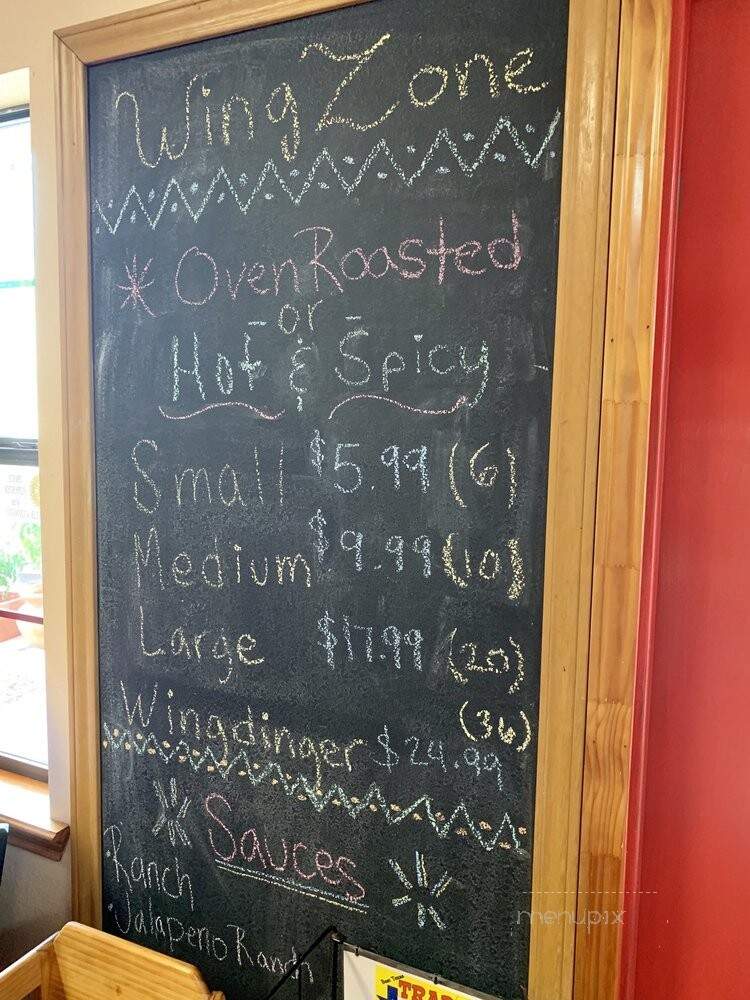 Wing Zone
* Oven Roasted
or
Hot & Spicy
Small $5.99 (6)
Medium $9.99 (10)
Large $17.99 (20)
Wingdinger $24.99 (36)
Sauces
·Ranch
·Jalapeno Ranch
menupix